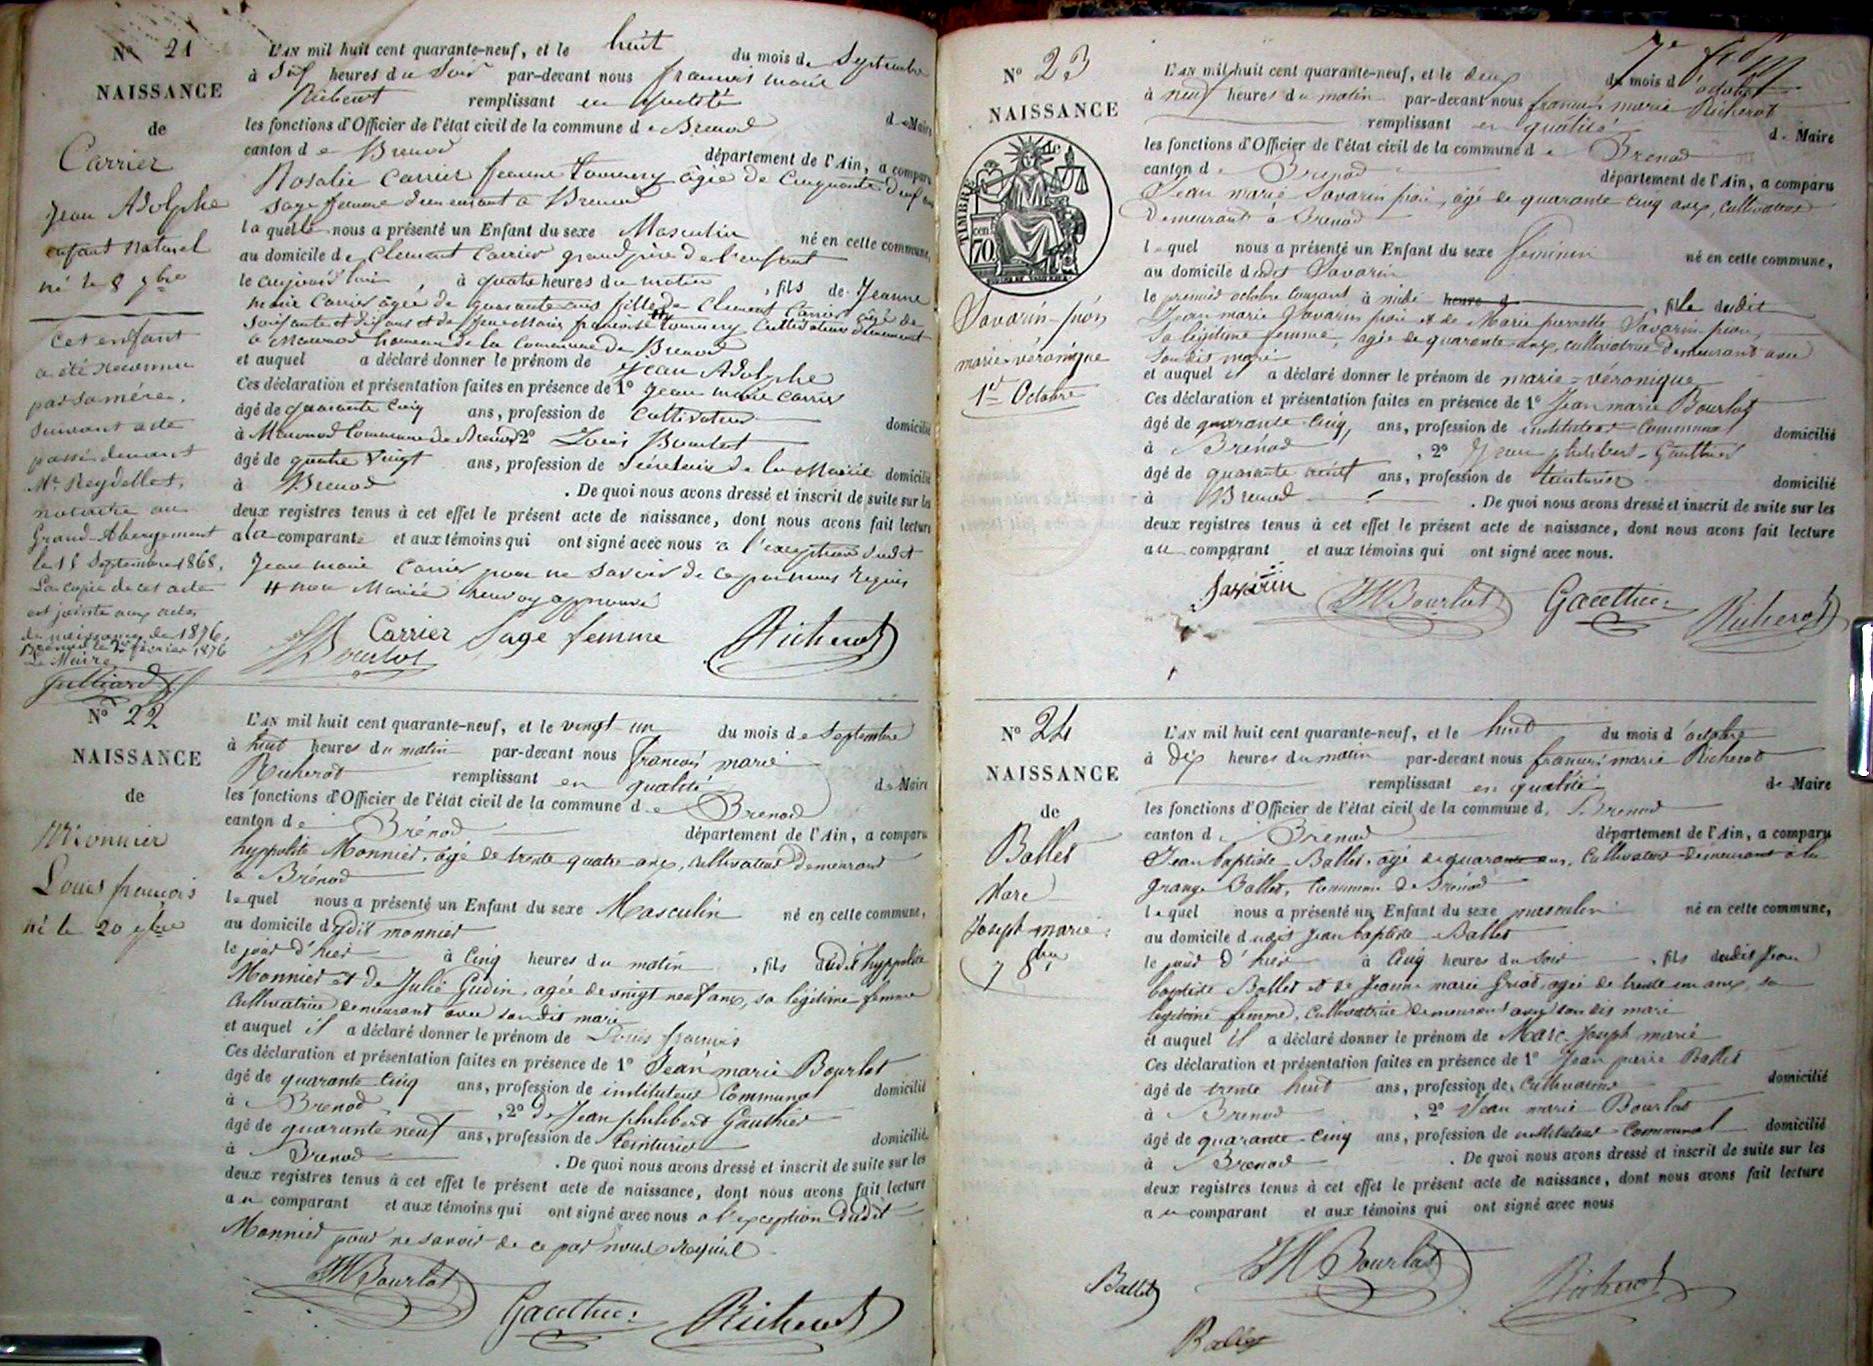 N° 21
NAISSANCE
de
Carrier
Jean Adolphe
enfant naturel
né le 8 7bre
Cet enfant
a été reconnu
par sa mère,
suivant acte
passé devant
Me Reydellet,
notaire au
Grand-Abergement
le 18 Septembre 1868.
La copie de cet acte
est jointe aux actes
de naissance de 1876.
Brénod le 2 février 1876
Le Maire
Julliard
L'AN mil huit cent quarante-neuf, et le huit du mois de Septembre
à Sept heures du Soir par-devant nous francois marie
Richerot remplissant en qualité de Maire
les fonctions d'Officier de l'état civil de la commune de Brenod
canton de Brenod département de l'Ain, a comparu
Rosalie Carrier femme Tournery âgée de Cinquante neuf ans
sage femme demeurant a Brenod
laquelle nous a présenté un Enfant du sexe Masculin né en cette commune,
au domicile de Clement Carrier grand père de l'enfant
le aujourd'hui, à quatre heures du matin, fils de Jeanne
marie Carrier agée de quarante ans fille de Clement Carrier âgé de
soixante et dix ans et de Jeanne Marie françoise Tournery Cultivateurs demeurant
a Macconod hameau de la Commune de Brenod
et auquel a déclaré donner le prénom de Jean Adolphe
Ces déclaration et présentation faites en présence de 1° Jean marie Carrier
âgé de quarante cinq ans, profession de Cultivateur domicilié
à Macconod Commune de Brenod 2° Louis Bourlot
âgé de quatre vingt ans, profession de Sécrétaire de la Mairie domicilié
à Brenod. De quoi nous avons dressé et inscrit de suite sur les
deux registres tenus à cet effet le présent acte de naissance, dont nous avons fait lecture
a la comparante et aux témoins qui ont signé avec nous a l'exception dudit
Jean marie Carrier pour ne Savoir de ce par nous Requis
# non Mariée renvoy approuvé
Carrier Sage femme Richerot
Bourlot
N° 22
NAISSANCE
de
Monnier
Louis françois
né le 20 7bre
L'AN mil huit cent quarante-neuf, et le vingt un du mois de Septembre
à huit heures du matin par-devant nous francois marie
Richerot remplissant en qualité de Maire
les fonctions d'Officier de l'état civil de la commune de Brenod
canton de Brénod département de l'Ain, a comparu
hyppolite Monnier, âgé de trente quatre ans, cultivateur demeurant
a Brénod
lequel nous a présenté un Enfant du sexe Masculin né en cette commune,
au domicile dudit monnier
le jour d'hier à Cinq heures du matin, fils dudit hyppolite
Monnier et de Julie Gudin, agée de vingt neuf ans, sa légitime femme
Cultivatrice demeurant avec son dit mari
et auquel il a déclaré donner le prénom de Louis francois
Ces déclaration et présentation faites en présence de 1° Jean marie Bourlot
âgé de quarante cinq ans, profession de instituteur Communal domicilié
à Brenod, 2° de Jean philibert Gauthier
âgé de quarante neuf ans, profession de teinturier domicilié
à Brenod. De quoi nous avons dressé et inscrit de suite sur les
deux registres tenus à cet effet le présent acte de naissance, dont nous avons fait lecture
au comparant et aux témoins qui ont signé avec nous a l'exception dudit
Monnier pour ne savoir de ce par nous requis
JM Bourlot
Gauthier Richerot
7e
N° 23
NAISSANCE
de
TIMBRE
cent 70
Savarin-pion
marie-véronique
1er Octobre
L'AN mil huit cent quarante-neuf, et le deux du mois d'octobre
à neuf heures du matin par-devant nous francois marie Richerot
remplissant en qualité de Maire
les fonctions d'Officier de l'état civil de la commune de Brenod
canton de Brenod département de l'Ain, a comparu
Jean marie Savarin pion, âgé de quarante cinq ans, cultivateur
demeurant à Brenod
lequel nous a présenté un Enfant du sexe feminin né en cette commune,
au domicile dudit Savarin
le premier octobre courant à midi heure d, fille dudit
Jean marie Savarin pion et de Marie pierrette Savarin-pion,
sa légitime femme, agée de quarante ans, cultivatrice demeurant avec
son dit mari
et auquel il a déclaré donner le prénom de marie-véronique
Ces déclaration et présentation faites en présence de 1° Jean marie Bourlot
âgé de quarante cinq, ans, profession de instituteur Communal domicilié
à Brénod, 2° Jean philibert-Gauthier
âgé de quarante neuf ans, profession de teinturier domicilié
à Brenod. De quoi nous avons dressé et inscrit de suite sur les
deux registres tenus à cet effet le présent acte de naissance, dont nous avons fait lecture
au comparant et aux témoins qui ont signé avec nous.
Savarin JM Bourlot Gauthier Richerot
N° 24
NAISSANCE
de
Ballet
Marc
Joseph-marie
7 8bre
L'AN mil huit cent quarante-neuf, et le huit du mois d'octobre
à dix heures du matin par-devant nous francois marie Richerot
remplissant en qualité de Maire
les fonctions d'Officier de l'état civil de la commune de Brenod
canton de Brenod département de l'Ain, a comparu
Jean baptiste Ballet, âgé de quarante ans, Cultivateur demeurant à la
grange Ballet, Commune de Brénod
lequel nous a présenté un Enfant du sexe masculin né en cette commune,
au domicile dudit Jean baptiste Ballet
le jour d'hier à Cinq heures du Soir, fils dudit Jean
baptiste Ballet et de Jeanne marie Griot, agée de trente un ans, sa
legitime femme, Cultivatrice demeurant avec son dit mari
et auquel il a déclaré donner le prénom de Marc-Joseph marie
Ces déclaration et présentation faites en présence de 1° Jean pierre Ballet
âgé de trente huit ans, profession de Cultivateur domicilié
à Brenod, 2° Jean marie Bourlot
âgé de quarante-cinq ans, profession de instituteur Communal domicilié
à Brenod. De quoi nous avons dressé et inscrit de suite sur les
deux registres tenus à cet effet le présent acte de naissance, dont nous avons fait lecture
au comparant et aux témoins qui ont signé avec nous
Ballet JM Bourlot Richerot
Ballet